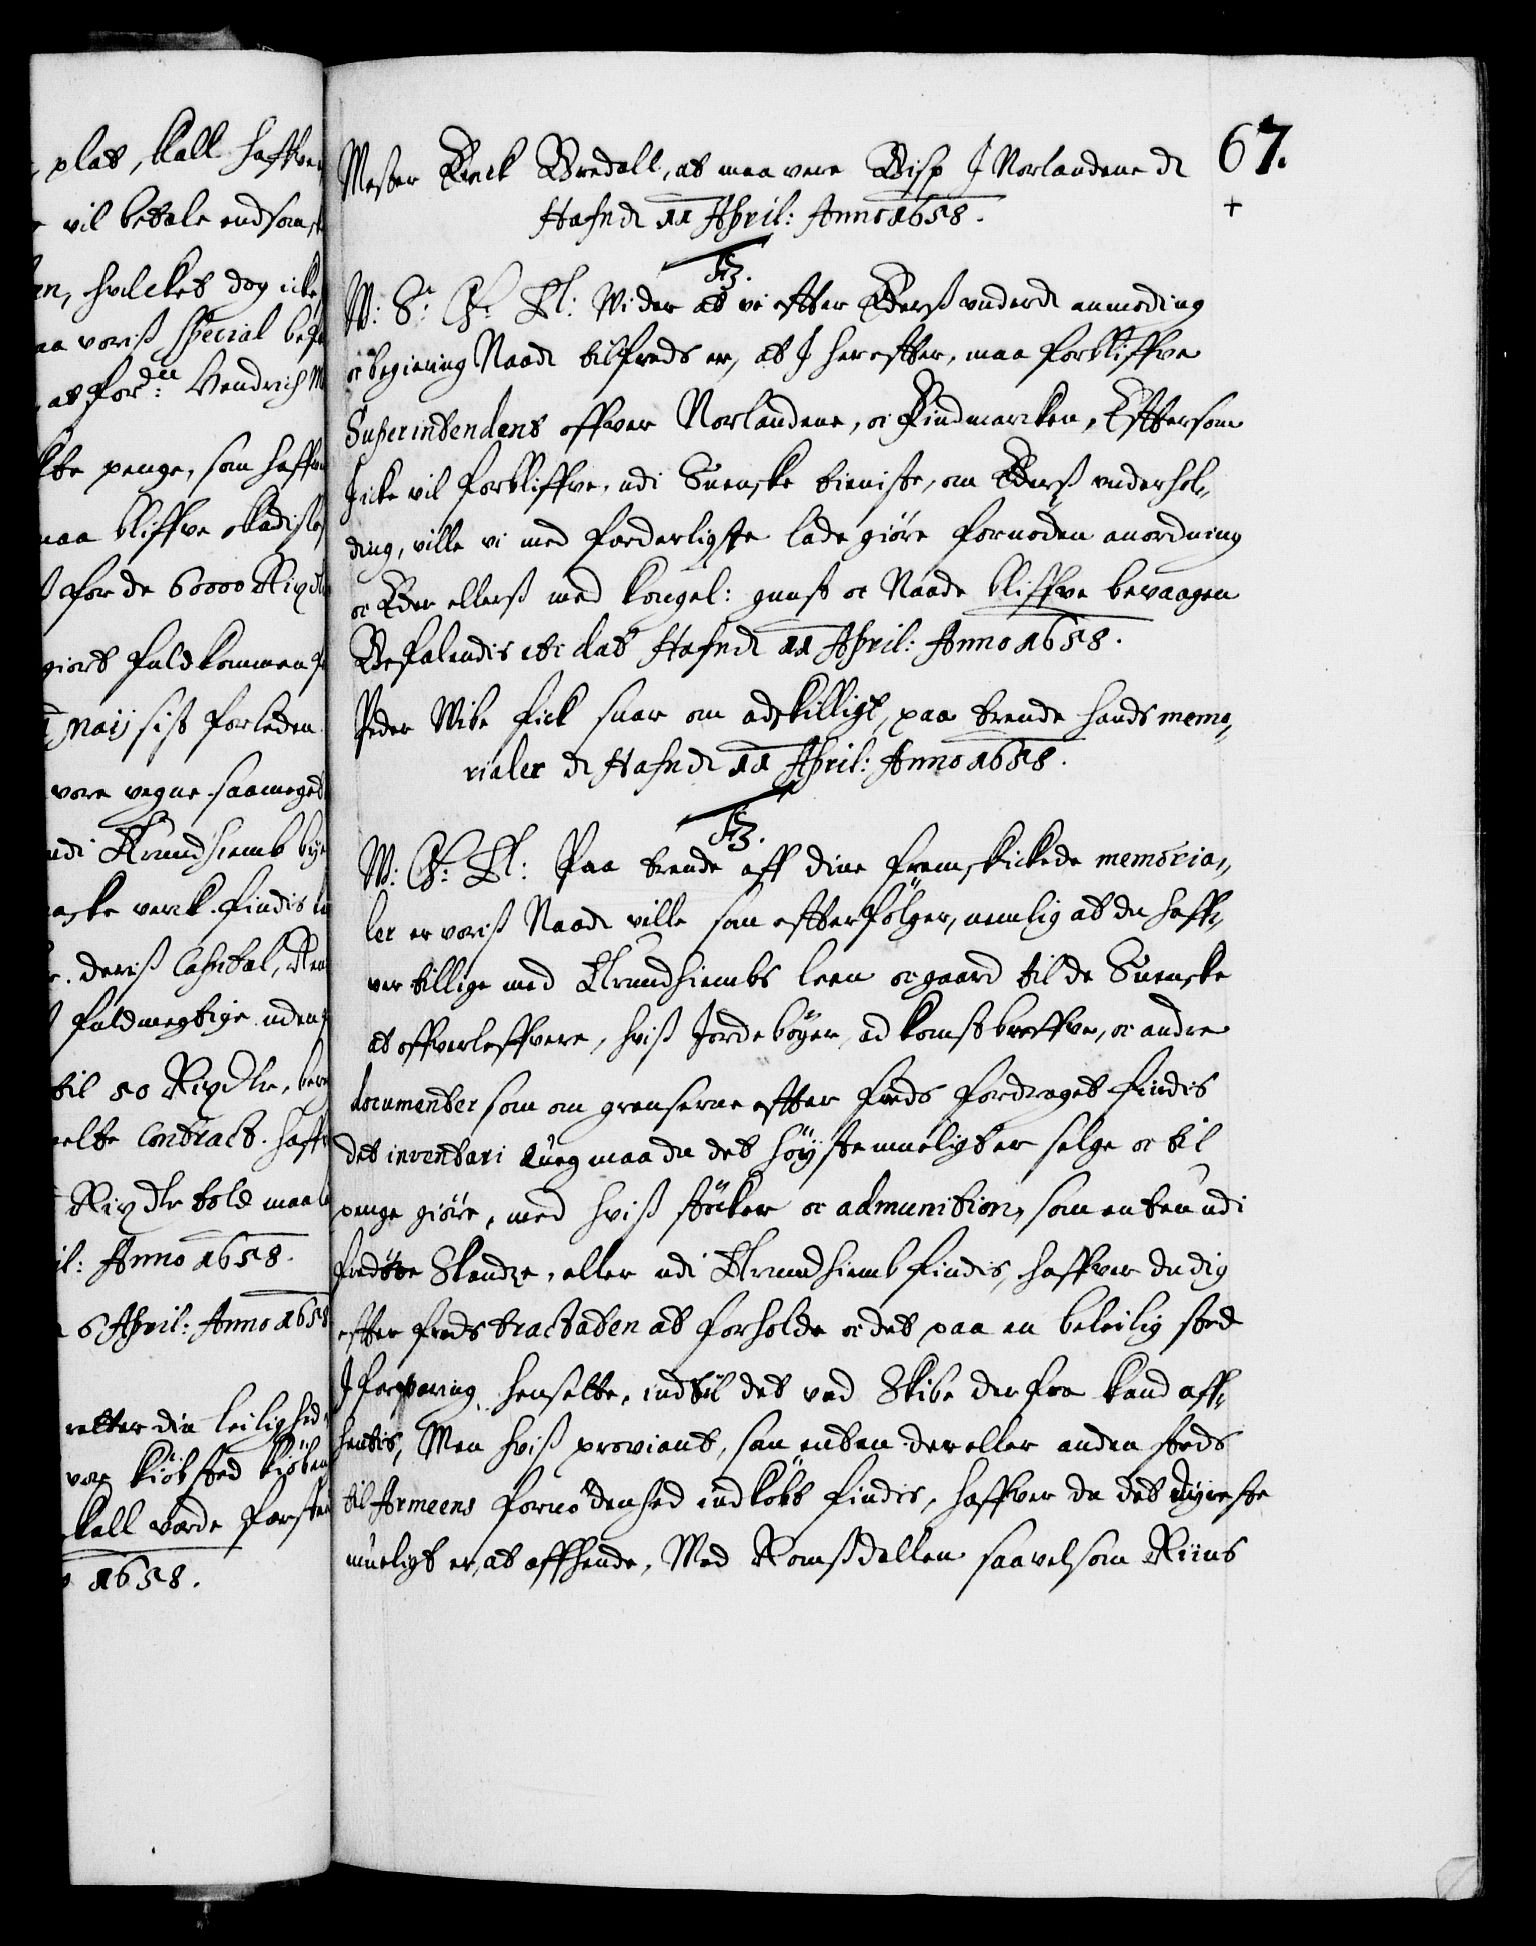 plat, skall haffve
vil betale endsom
hvilcket dog icke
voris special bef
at for.ne Hendrich M
penge, som haffve
maa bliffve skadisløs
for de 60000 Rixdlr
giort fuldkommen
Maij sist forleden
vore vegne saameget
udi Trundhiemb bye
verck findis
deris Capital, Ren
fuldmegtige uden
til 50 Rixdlr, ber
Contract. haffv
Rixdlr told maa
il: Anno 1658.
6 April: Anno 1658
retter din leilighed
vor kiøbsted Kiøben
skall vorde
1658.
67.
+
Mester Erick Bredall, at maa vere Bisp J Norlandene de
Hafn de 11 April: Anno 1658.
F3.
W: S: G: T: Wider at vi effter Ederß underd: anmoding
oc begiering Naadt tilfreds er, at J hereffter, maa forbliffve
Superintendent offver Norlandene, oc Findmarcken, Efftersom
J icke vil forbliffve, udi Suenske tieniste, om Ederß underhol„
ding, ville vi med forderligste lade giøre fornøden anordning
oc Eder ellerß med kongel: gunst oc Naade bliffve bevaagen
Befalendis etc: dat Hafn de 11 April: Anno 1658.
Peder Wibe fick suar om adskilligt, paa trende hands memo„
rialer de Hafn de 11 April: Anno 1658.
F3.
W: G: T: Paa trende aff dine fremskickede memoria„
ler er voriß Naadt ville som effterfölger, nemlig at du haff„
ver tillige med Trundhiembs leen oc gaard til de Suenske
at offverleffvere, hviß Jordebøger, adkomst breffve, oc andre
documenter som om grenserne effter freds fordraget findis
det inventari queg maa du det høyste mueligt er selge oc til
penge giøre, med hviß støcker oc admunition, som enten udi
Skandze, eller udi Trundhiemb findis, haffver du dig
effter freds tractaten at forholde oc det paa en beleilig sted
J forvaring hensette, indtil det ved Skibe der fra kand aff„
hentis, Men hviß proviant, som enten der eller anden steds
til Armeens fornødenhed indkøbt findis, haffver du det dyreste
mueligt er, at affhende, Med Romßdallen saavelsom Riins